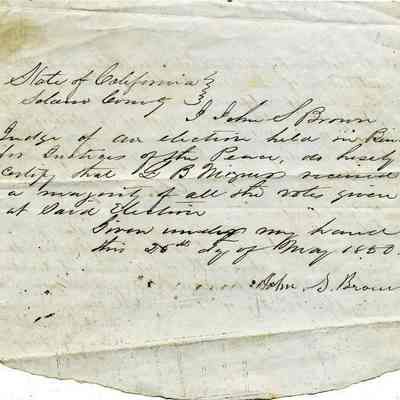 State of California
Solano County
I John S Brown
Judge of an election held in
for Justices of the Peace, do hereby
Certify that L B Mizner received
a majority of all the votes given
at Said Election
Given under my hand
this 28th dy of May 1850.
John S. Brown